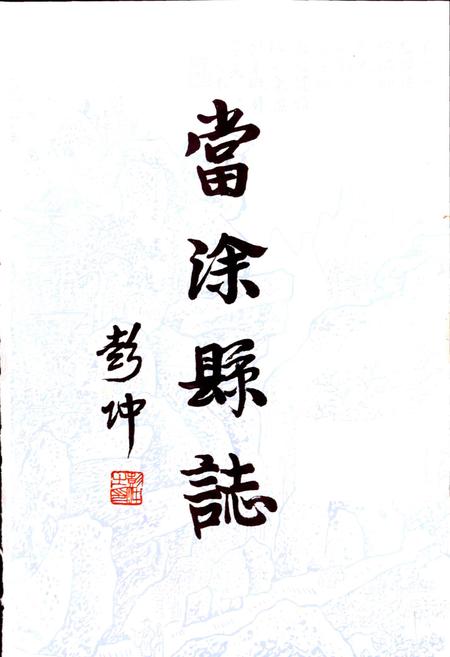 當涂縣誌
彭冲